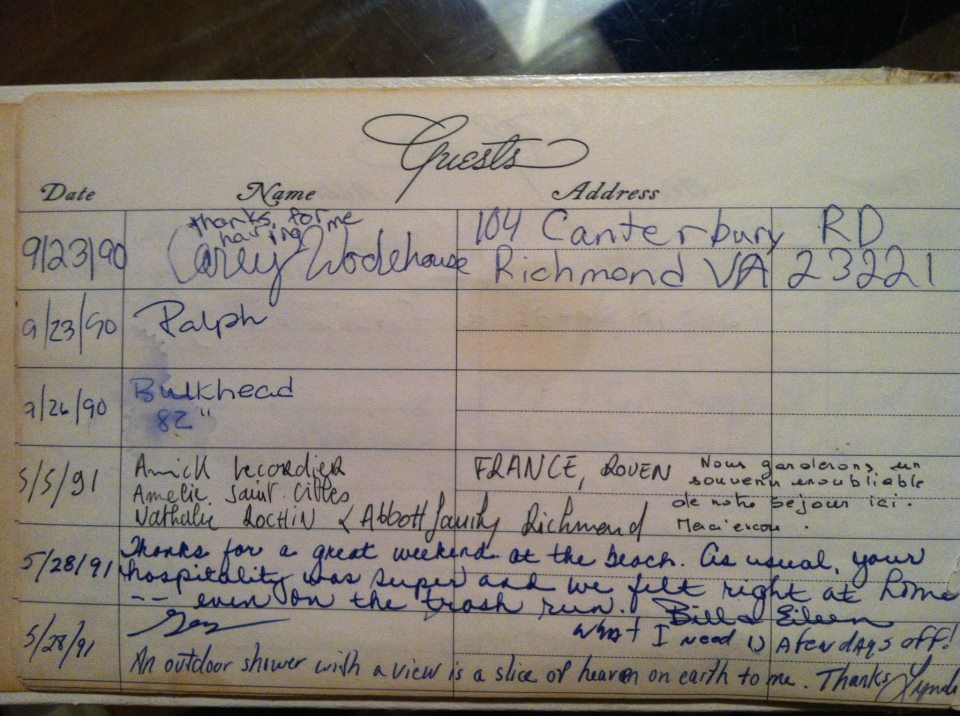 Guests
Date Name Address
9/23/90 thanks for me
having
Carey Wodehouse
104 Canterbury RD
Richmond VA 23221
9/23/90 Ralph
9/26/90 Bulkhead
82"
5/5/91 Annick Lecordier
Amelie Saint
Nathalie & Abbott family Richmond
FRANCE, ROUEN
Nous garderons un
souvenir inoubliable
de notre séjour ici.
Merci encore.
5/28/91 Thanks for a great weekend at the beach. As usual, your
hospitality was super and we felt right at home
-- even on the trash run. Bill & Eileen
5/28/91
What I need is a few days off!
An outdoor shower with a view is a slice of heaven on earth to me. Thanks